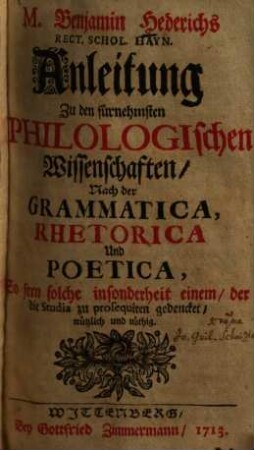 M. Benjamin Hederichs
RECT. SCHOL. HAYN.
Anleitung
Zu den fürnehmsten
PHILOLOGIschen
Wissenschaften/
Nach der
GRAMMATICA,
RHETORICA
Und
POETICA,
So fern solche insonderheit einem/ der
die Studia zu prosequiren gedencket/
nützlich und nöthig.
WITTENBERG/
Bey Gottfried Zimmermann/ 1713.